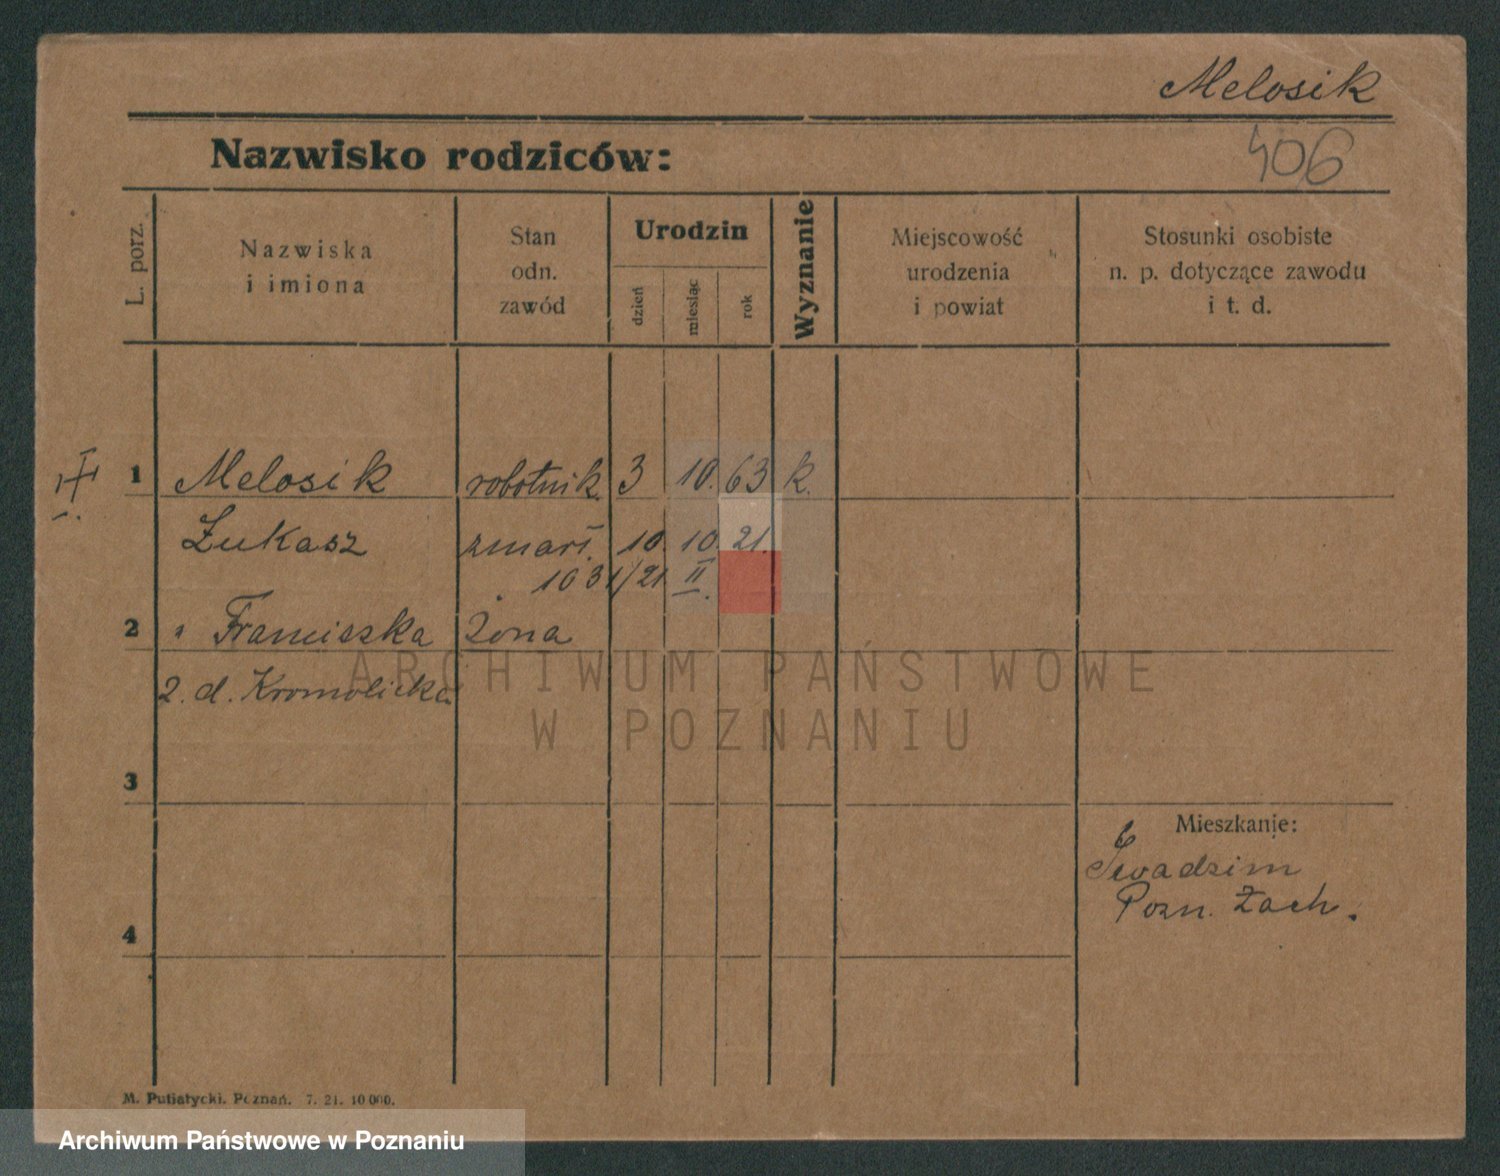 Melosik
406
Nazwisko rodziców:
L. porz.
Nazwiska
i imiona
Stan
odn.
zawód
Urodzin
dzień
miesiąc
rok
Wyznanie
Miejscowość
urodzenia
i powiat
Stosunki osobiste
n. p. dotyczące zawodu
i t. d.
1 Melosik robotnik 3 10. 63 k.
Łukasz zmarł. 10. 10. 21.
1031/21 II.
2 " Franciszka żona
2. d. Kromolicka
3
4
Mieszkanie:
Swadzim
Pozn. Zach.
M. Putiatycki. Poznań. 7. 21. 10 000.
ARCHIWUM PAŃSTWOWE
W POZNANIU
Archiwum Państwowe w Poznaniu